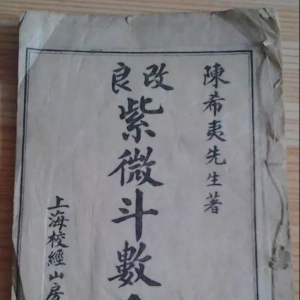 陳希夷先生著
改良
紫微斗數
上海校經山房